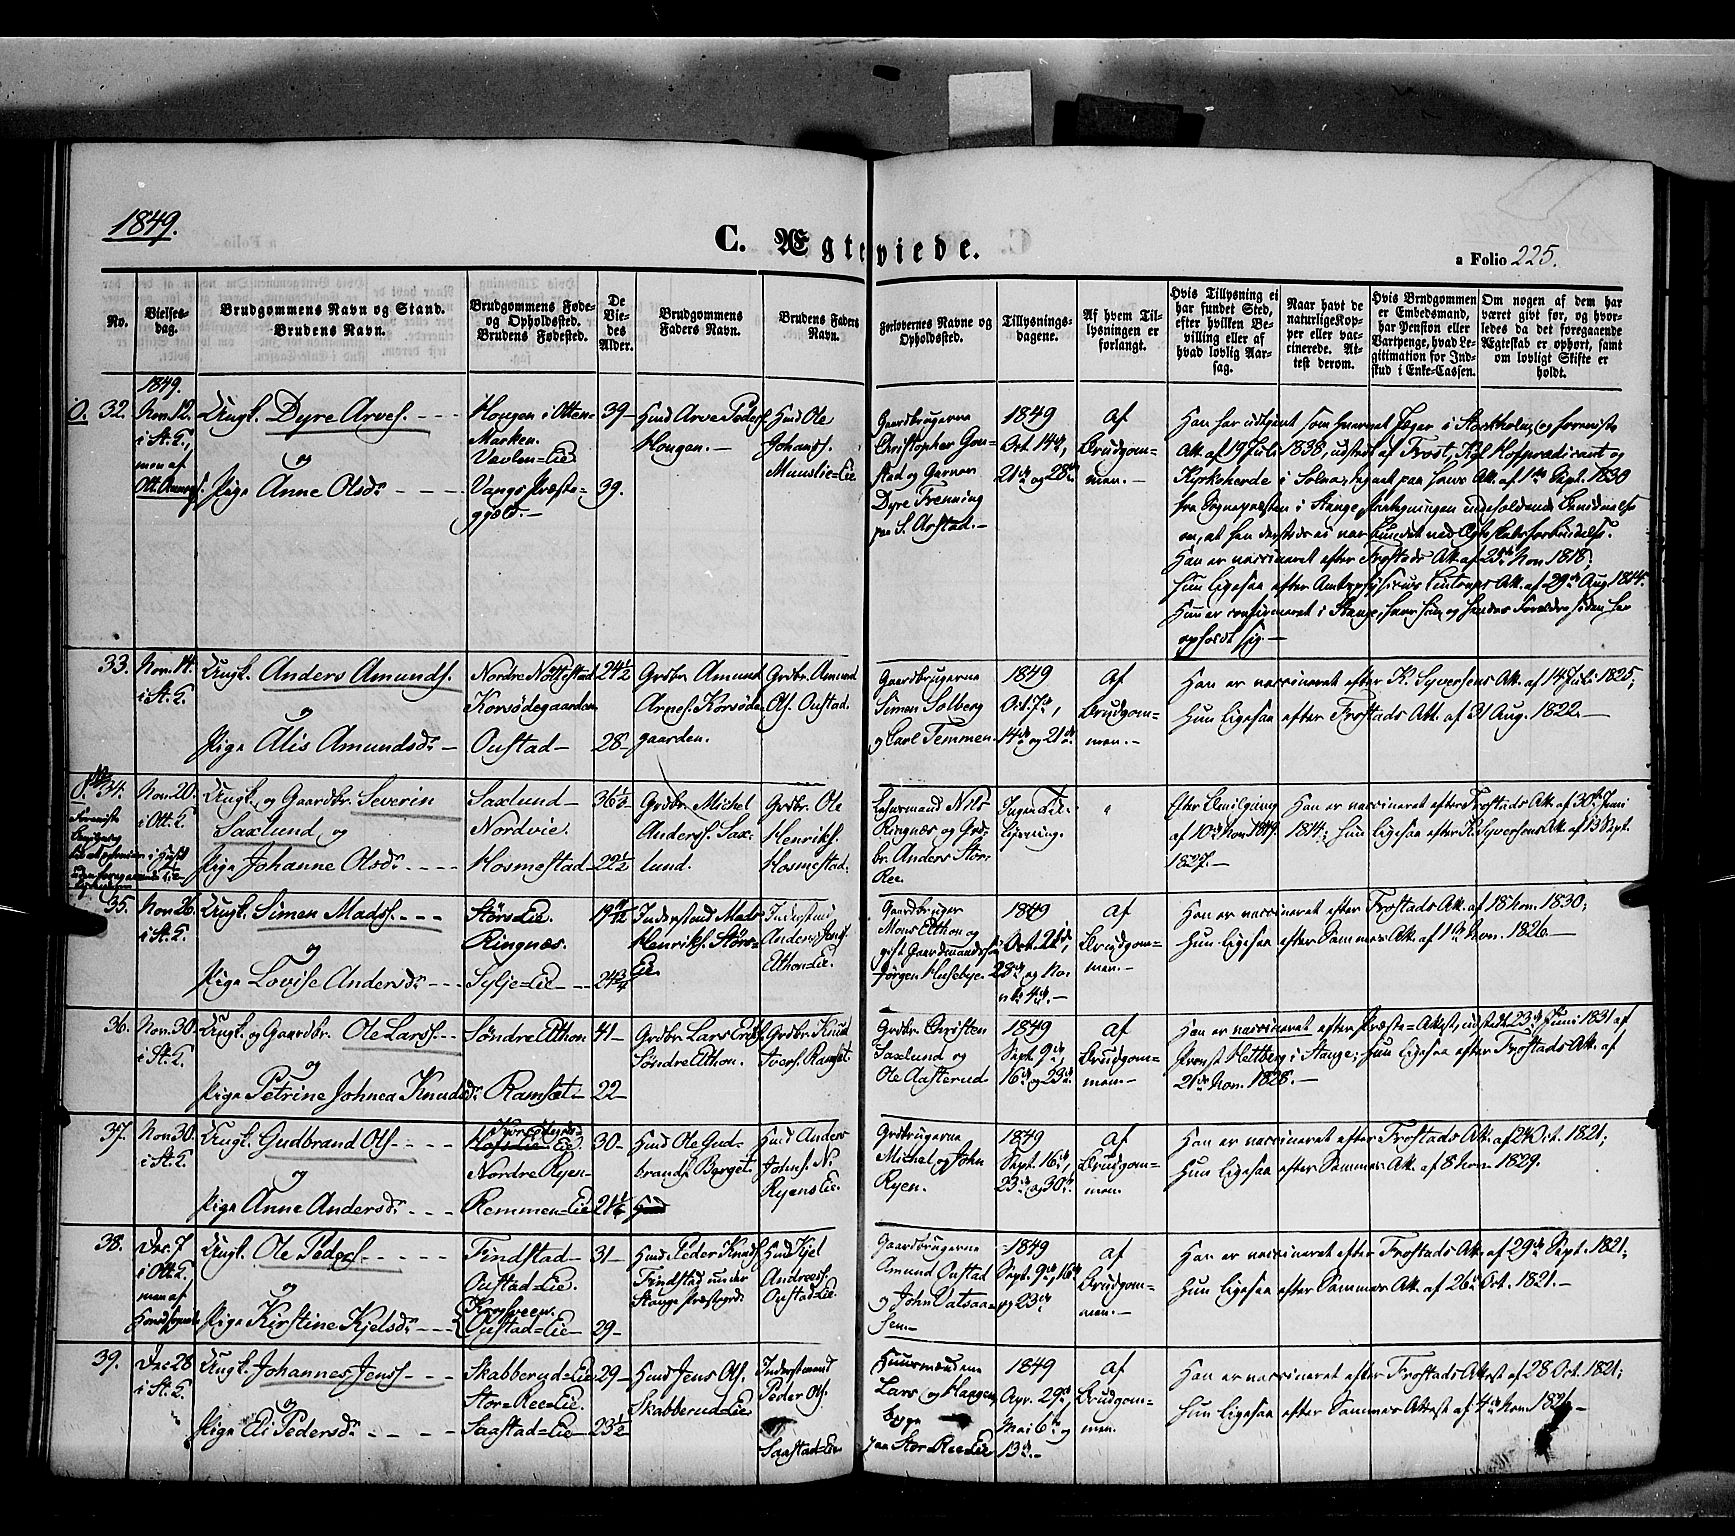 1849.
C. Ægteviede.
a Folio 225.
No.
Vielses-
dag.
Brudgommens Navn og Stand.
Brudens Navn.
Brudgommens Føde-
og Opholdssted.
Brudens Fødested.
De
Vie-
des
Alder.
Brudgommens
Faders Navn.
Brudens Faders
Navn.
Forlovernes Navne og
Opholdssted.
Tillysnings-
dagene.
Af hvem Til-
lysningen er
forlangt.
Hvis Tillysning ei
har fundet Sted,
efter hvilken Be-
villing eller af
hvad lovlig Aar-
sag.
Naar havt de
naturlige Kop-
per eller vac-
cinerede. At-
test derom.
Hvis Brudgommen
er Embedsmand,
har Pension eller
Vartpenge, hvad Le-
gitimation for Ind-
skud i Enke-Cassen.
Om nogen af dem har
været gift før, og hvor-
ledes da det foregaaende
Ægteskab er ophørt, samt
om lovligt Skifte er
holdt.
32.
1849.
Nov. 12.
i St. K.,
men af
Ott. Annex.
Ungk. Dyre Arnes.
og
Pige Anne Olsd.
Hougen i Otten-
Marken.
Vangs Præste-
gjeld.
39
39.
Hmd Arne Peders.
Hougen.
Hmd Ole
Johans.
Gaardbrugerne
Christopher
stad og
Dyre Frenning
paa S. Arstad.
1849
Oct. 14de,
21de og 28de
af
Brudgom-
men.
Han har udtjent som
Att. af 19 Juli 1838, udstedt af
Han er vaccineret efter Frostads Att. af 25de Nov. 1818;
Hun ligesaa efter
Att. af 29de Aug. 1814.
Hun er confirmeret i Stange, hvor hun og hendes Forældre siden har
opholdt sig.
33.
Nov. 14.
i St. K.
Ungk. Anders Amunds.
og
Pige Alis Amundsd.
Nordre Nøttestad
Korsødegaarden
Oustad
24 1/2
28
Grdbr. Amund
Arnes. Korsøde-
gaarden.
Grdbr. Amund
Ols. Oustad.
Gaardbrugerne
Simen Solberg
og Carl Temmen.
1849
Oct. 7de,
14de og 21de.
af
Brudgom-
men.
Han er vaccineret efter K. Syversens Att. af 14 Juli 1825;
Hun ligesaa efter Frostads Att. af 31 Aug. 1822.
34.
Nov. 20.
i Ott. K.
Ungk. og Gaardbr. Severin
Saxlund og
Pige Johanne Olsd.
Saxlund
Nordvie.
Hosmestad
36 1/2
22 1/2
Grdbr. Michel
Anders. Sax-
lund.
Grdbr. Ole
Henriks.
Hosmestad.
Lehnsmand Nils
Ringnæs og Grd-
br. Anders Stor-
Ree.
Ingen Til-
lysning.
"
Efter Bevilgning
af 10de Nov. 1849.
Han er vaccineret efter Frostads Att. af 30te Juni
1814; Hun ligesaa efter K. Syversens Att. af 13 Sept.
1827.
35.
Nov. 26.
i St. K.
Ungk. Simen Mads.
og
Pige Lovise Andersd.
Størs-Eie.
Ringnæs.
Sylje-Eie
24 3/4
Inderstmd Mads
Henriks. Størs-
Eie.
Inderstmd
Anders Jens.
Elthon-Eie.
Gaardbruger
Mons Elthon og
gift Gaardmandssøn
Jørgen Husebye.
1849
Oct. 21de,
28de og No-
vbr. 4de.
af
Brudgom-
men.
Han er vaccineret efter Frostads Att. af 18 Nov. 1830;
Hun ligesaa efter Sammes Att. af 1ste Nov. 1826.
36.
Nov. 30.
i St. K.
Ungk. og Gaardbr. Ole Lars.
og
Pige Petrine Johnea Knudsd.
Søndre Elthon
Ramset
41
22
Grdbr. Lars Eriks.
Søndre Elthon.
Grdbr. Knud
Ivers. Ramset.
Grdbr. Christen
Saxlund og
Ole Aasterud
1849
Sept. 9de,
16de og 23de.
af
Brudgom-
men.
Han er vaccineret efter Præste-Attest, udstedt 23de Juni 1831 af
Provst Heltberg i Stange; Hun ligesaa efter Frostads Att. af
21de Nov. 1828.
37.
Nov. 30.
i St. K.
Ungk. Gudbrand Ols.
og
Pige Anne Andersd.
Nordre Ryen
Remmen-Eie
30
Hmd Ole Gud-
brands. Berget.
Hmd Anders
Johns. N.
Ryens Eie.
Grdbrugerne
Michel og John
Ryen.
1849
Sept. 16de,
23de og 30te.
af
Brudgom-
men.
Han er vaccineret efter Frostads Att. af 24 Oct. 1821;
Hun ligesaa efter Sammes Att. af 8 Nov. 1829.
38.
Dec. 7
i Ott. K.
men af
Hovedsognet
Ungk. Ole Peders.
og
Pige Kirstine Kjelsd.
Findstad
Oustad-Eie.
Kroghveen.
Oustad-Eie
31
29
Hmd Peder Knuds.
Findstad under
Stange Præstegrd
Hmd Kjel
Andreas.
Oustad-Eie.
Gaardbrugerne
Amund Oustad
og John Vatsaa-
sen.
1849
Sept. 9de, 16de
og 23de
af
Brudgom-
men.
Han er vaccineret efter Frostads Att. af 29de Sept. 1821;
Hun ligesaa efter Sammes Att. af 26de Oct. 1821.
39.
Dec. 28
i St. K.
Ungk. Johannes Jens.
og
Pige Eli Pedersd.
Skabberud-Eie
Stor-Ree-Eie.
Saastad-Eie
29
23 1/2
Hmd Jens Ols.
Skabberud-Eie
Inderstmand
Peder Ols.
Saastad-Eie
Huusmændene
Lars og
paa Stor-Ree-Eie
1849
Apr. 29de,
Mai 6te og
13de.
af
Brudgom-
men.
Han er vaccineret efter Frostads Attest af 28 Oct. 1821;
Hun ligesaa efter Sammes Attest af 4de Nov. 1826.